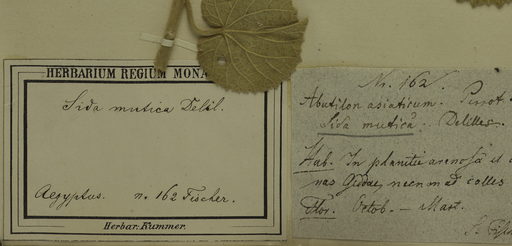 HERBARIUM REGIUM MONA
Sida mutica Delil.
Aegyptus. n. 162 Fischer.
Herbar: Kummer.
Nr. 162.
Abutilon asiaticum.
Sida mutica. Delilles.
Hab. In planitie arenosa et
nas Geddae, nec non ad colles
Flor. Octob. — Mart.